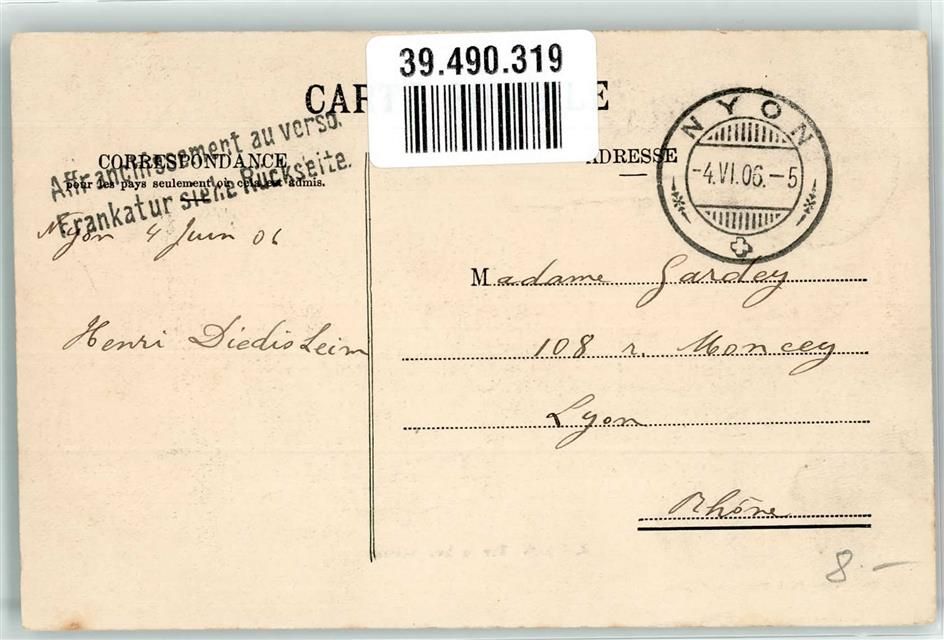 39.490.319
CAR LE
Affranchissement au verso.
Frankatur siehe Rückseite.
CORRESPONDANCE
pour les pays seulement où cela est admis.
ADRESSE
NYON
-4.VI.06.-5
Nyon 4 Juin 06
Henri Diedisheim
Madame Gardey
108 r. Moncey
Lyon
Rhône
8.-